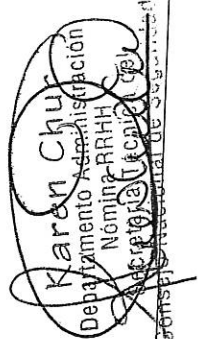 Karen Chur
Departamento Administración
Nómina RRHH
Secretaría Técnica del
Consejo Nacional de Seguridad